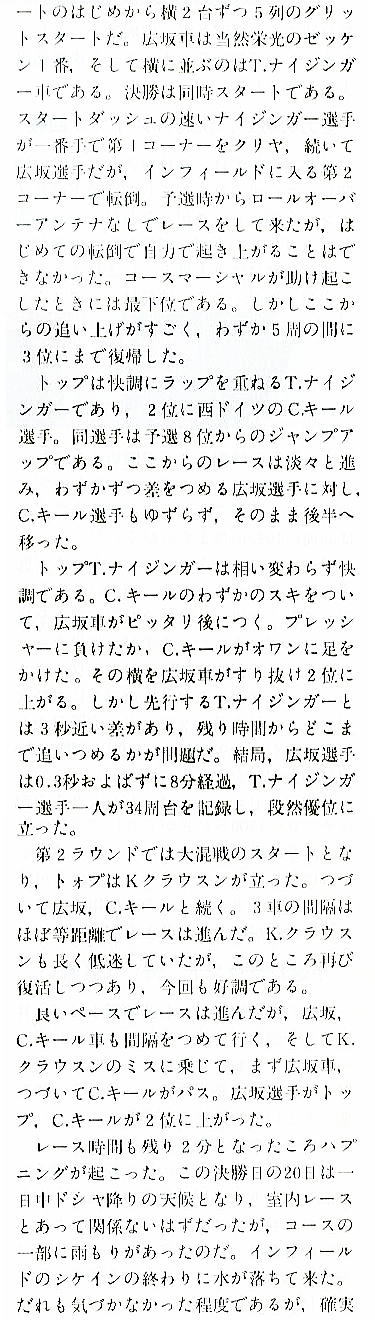 ートのはじめから横2台ずつ5列のグリッ
トスタートだ。広坂車は当然栄光のゼッケ
ン1番，そして横に並ぶのはT.ナイジンガ
ー車である。決勝は同時スタートである。
スタートダッシュの速いナイジンガー選手
が一番手で第1コーナーをクリヤ，続いて
広坂選手だが，インフィールドに入る第2
コーナーで転倒。予選時からロールオーバ
ーアンテナなしでレースをして来たが，は
じめての転倒で自力で起き上がることはで
きなかった。コースマーシャルが助け起こ
したときには最下位である。しかしここか
らの追い上げがすごく，わずか5周の間に
3位にまで復帰した。
　トップは快調にラップを重ねるT.ナイジ
ンガーであり，2位に西ドイツのC.キール
選手。同選手は予選8位からのジャンプア
ップである。ここからのレースは淡々と進
み，わずかずつ差をつめる広坂選手に対し，
C.キール選手もゆずらず，そのまま後半へ
移った。
　トップT.ナイジンガーは相い変わらず快
調である。C.キールのわずかのスキをつい
て，広坂車がピッタリ後につく。プレッシ
ャーに負けたか，C.キールがオワンに足を
かけた。その横を広坂車がすり抜け2位に
上がる。しかし先行するT.ナイジンガーと
は3秒近い差があり，残り時間からどこま
で追いつめるかが問題だ。結局，広坂選手
は0.3秒およばずに8分経過，T.ナイジンガ
ー選手一人が34周台を記録し，段然優位に
立った。
　第2ラウンドでは大混戦のスタートとな
り，トォプはKクラウスンが立った。つづ
いて広坂，C.キールと続く。3車の間隔は
ほぼ等距離でレースは進んだ。K.クラウス
ンも長く低迷していたが，このところ再び
復活しつつあり，今回も好調である。
　良いペースでレースは進んだが，広坂，
C.キール車も間隔をつめて行く，そしてK.
クラウスンのミスに乗じて，まず広坂車，
つづいてC.キールがパス。広坂選手がトッ
プ，C.キールが2位に上がった。
　レース時間も残り2分となったころハプ
ニングが起こった。この決勝日の20日は一
日中ドシャ降りの天候となり，室内レース
とあって関係ないはずだったが，コースの
一部に雨もりがあったのだ。インフィール
ドのシケインの終わりに水が落ちて来た。
だれも気づかなかった程度であるが，確実